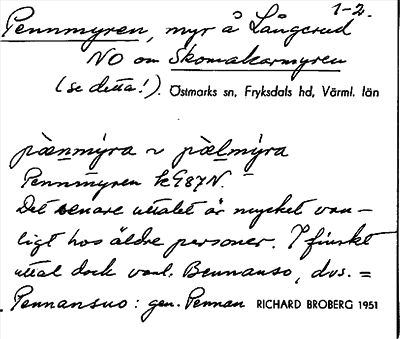 1-2.
Pennmyren, myr å Långerud
NO om Skomakarmyren
(se detta!). Östmarks sn, Fryksdals hd, Värml. län
pænmýra ~ pælmýra
Pennmyren k G87N.
Det senare uttalet är mycket van-
ligt hos äldre personer. I finskt
uttal dock vanl. Bennanso, dvs. =
Pennansuo: gen. Pennan RICHARD BROBERG 1951